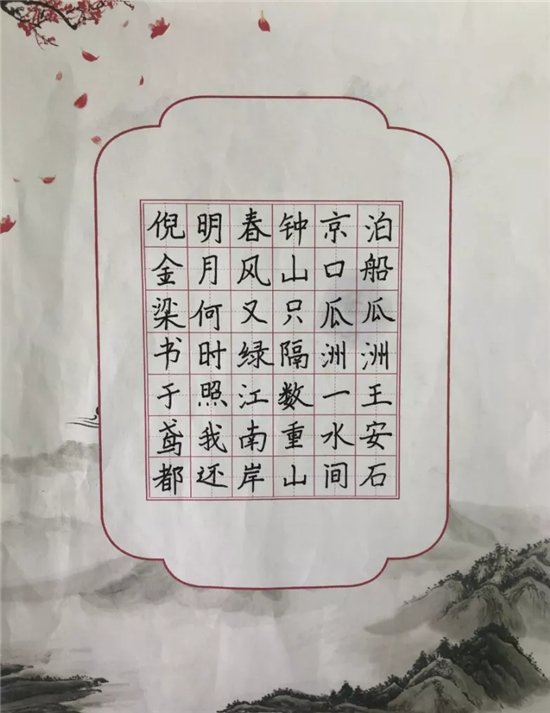 泊船瓜洲王安石
京口瓜洲一水间
钟山只隔数重山
春风又绿江南岸
明月何时照我还
倪金梁书于鸢都